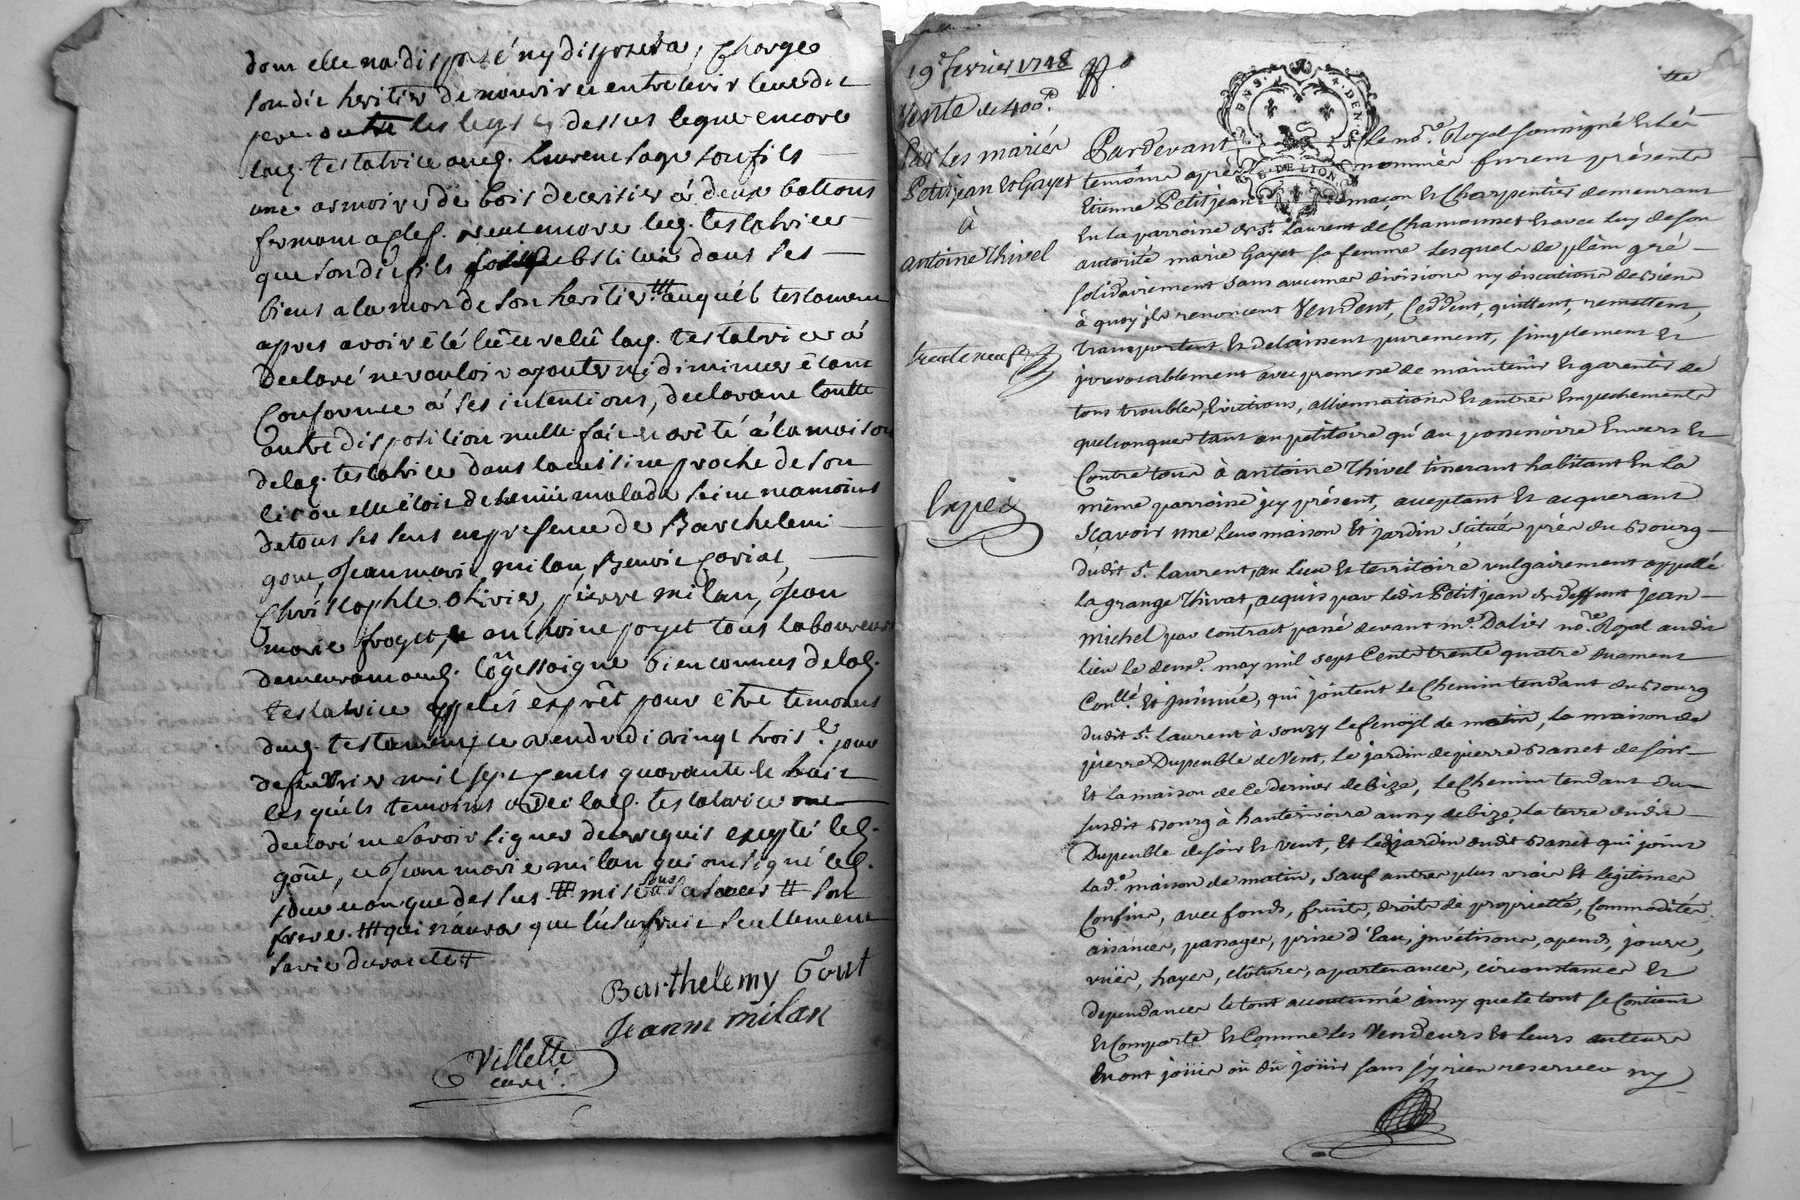 dont elle na disposé ny disposera, Charge
sondit heritier de nourir et entretenir leurdit
pere outre les legs cy dessus legue encore
lad. testatrice aud. Laurent sage son fils
une armoire de bois de cerisier à deux battans
fermant a clef. veut encore lad. testatrice
que sondit fils soit substitué dans ses
biens a la mort de son heritier ## auquel testament
apres avoir été lû et relû lad. testatrice a
declaré ne vouloir ajouter ni diminuer étant
Conforme à ses intentions, declarant toutte
autre disposition nulle fait et arété à la maison
de lad. testatrice dans la cuisine proche de son
lit ou elle étoit detenüe malade saine neamoins
de tous ses sens en presence de Barthelemi
gout, Jean marie milan, Benoit
Christophle olivier, pierre milan, Jean
marie froget, anthoine poyet tous laboureurs
demeurant aud. Longessaigne bien connus de lad.
testatrice appelés exprêt pour être temoins
dud. testament, ce vendredi vingt trois.e jour
de fevrier mil sept cents quarante et huit
les quels temoins avec lad. testatrice ont
declaré ne savoir signer de ce requis excepté led.
goût, et Jean marie milan qui ont signé led.
jour et an que dessus. ## mise sous sa ## son
frere. ## qui n'aura que l'usufruit seullement
sa vie durante #
Barthelemy Gout
Jeanm milan
Villette
curé.
19e fevrier 1748
Vente de 400#
Par Les mariés
Petitjean Et Gayet
à
antoine Thivel
Expéé
BNS. DEN.
G. DE LION
Pardevant Le nore Royal soussigné Et Les
temoins après nommés furent présents
Etienne Petitjean masson Et Charpentier demeurant
En la parroisse de St. Laurent de Chamousset Et avec luy de son
autorité marie Gayet sa femme Lesquels de plein gré
solidairement sans aucunes divisions ny discutions de biens
à quoy ils renoncent Vendent, Ceddent, quittent, remettent,
transportent Et delaissent purement, simplement Et
irrevocablement avec promesse de maintenir Et garentir de
tous troubles, Evictions, allienations Et autres Empechements
quelconques tant au petitoire qu'au possessoire Envers Et
Contre tous à antoine Thivel tisserant habitant En La
même parroisse icy présent, acceptant Et acquerant
Sçavoir une leur maison Et jardin Scitués près du Bourg
dudit St. Laurent, au Lieu Et territoire vulgairement appellé
La grange Thivat, acquis par Ledit Petitjean de deffunt jean
michel par contract passé devant me. Dalier nore. Royal audit
Lieu Le deuxe. may mil sept Cents trente quatre duement
Conllé. Et insinué, qui joutent Le Chemin tendant du Bourg
dudit St. Laurent à Souzy Lesenoijl de matin, La maison de
pierre Dupeuble de Vent, Le jardin de pierre Basset de soir
Et La maison de Ce dernier de bize, Le Chemin tendant du
susdit Bourg à hauterivoire aussy de bize, La terre dudit
Dupeuble de soir Et Vent, Et Led. jardin dudit Basset qui joint
Lade. maison de matin, Sauf autres plus vrais Et Legitimes
Confins, avec fonds, fruits, droits de proprietté, Commodités,
aisances, passages, prise d'Eau, apends, jours,
vües, hayes, Clotures, apartenances, circonstances Et
dependances Le tout accoutumé ainsy que Le tout se Contient
Et Comporte Et Comme Les Vendeurs Et Leurs auteurs
En ont joüir ou dû joüir sans s'y rien reserver ny